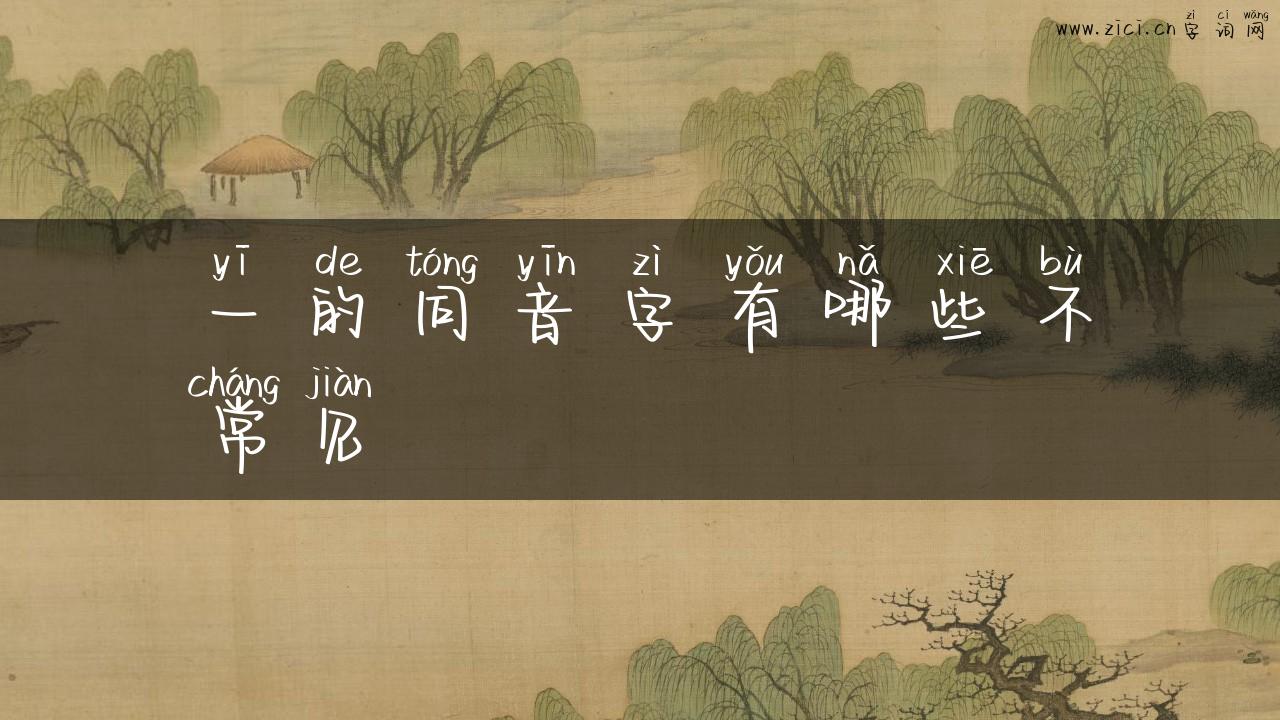 zì cí wǎng
www.zici.cn 字 词 网
yī de tóng yīn zì yǒu nǎ xiē bù
一 的 同 音 字 有 哪 些 不
cháng jiàn
常 见